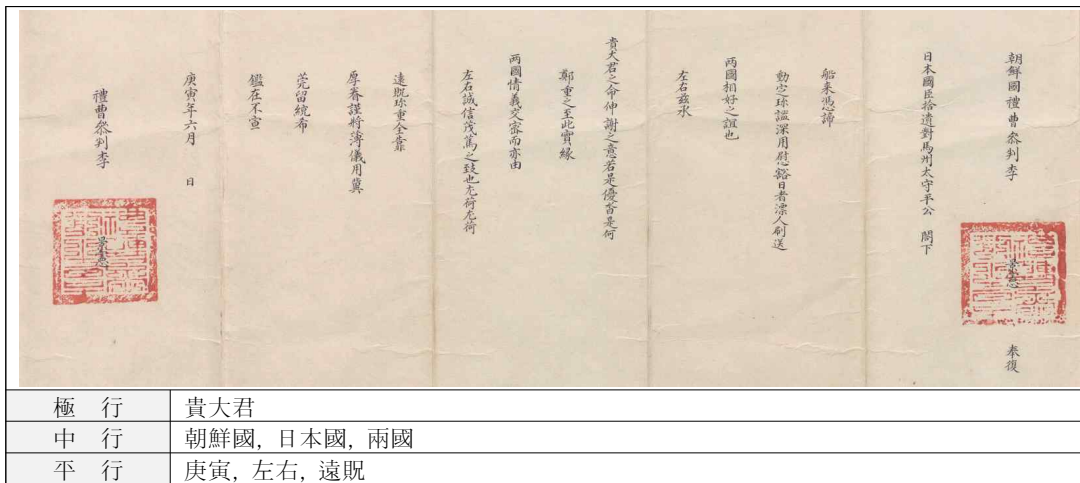 朝鮮國禮曹叅判李 景憲 奉復
日本國臣拾遺對馬州太守平公 閤下
船来憑諦
動定珎謐深用慰豁日者漂人刷送
两國相好之誼也
左右玆承
貴大君之命伸謝之意若是優是何
鄭重之至此實緣
两國情義交密而亦由
左右誠信茂篤之致也尤荷尤荷
遠貺珎重全靠
厚眷謹將薄儀用冀
莞留統希
鑑在不宣
庚寅年六月 日
禮曹叅判李 景憲
極 行 貴大君
中 行 朝鮮國, 日本國, 兩國
平 行 庚寅, 左右, 遠貺